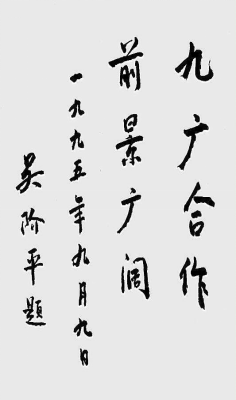 九广合作
前景广阔
一九九五年九月九日
吴阶平题